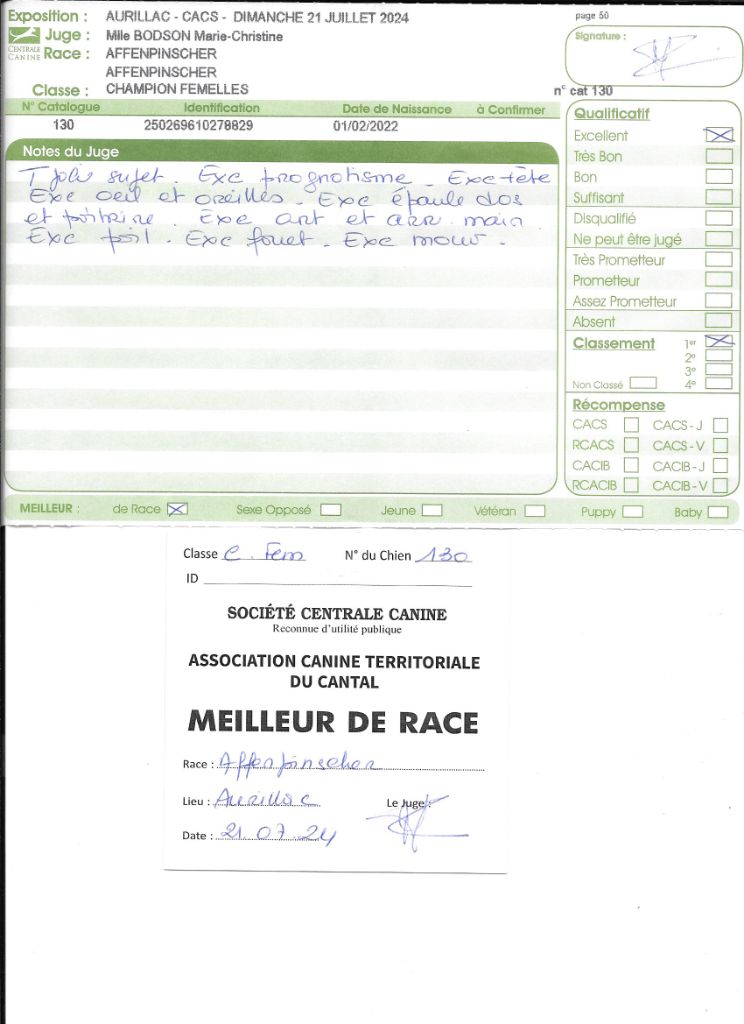 Exposition : AURILLAC - CACS - DIMANCHE 21 JUILLET 2024
page 50
Juge : Mlle BODSON Marie-Christine
CENTRALE CANINE
Race : AFFENPINSCHER
AFFENPINSCHER
Classe : CHAMPION FEMELLES
Signature :
n° cat 130
N° Catalogue Identification Date de Naissance à Confirmer
130 250269610278829 01/02/2022
Notes du Juge
T joli sujet. Exc prognotisme. Exc tête
Exc oeil et oreilles. Exc épaule dos
et poitrine. Exc ant et arr. main
Exc poil. Exc fouet. Exc mouv.
Qualificatif
Excellent
Très Bon
Bon
Suffisant
Disqualifié
Ne peut être jugé
Très Prometteur
Prometteur
Assez Prometteur
Absent
Classement 1er
2e
3e
Non Classé 4e
Récompense
CACS CACS - J
RCACS CACS - V
CACIB CACIB - J
RCACIB CACIB - V
MEILLEUR : de Race Sexe Opposé Jeune Vétéran Puppy Baby
Classe C. Fem N° du Chien 130
ID
SOCIÉTÉ CENTRALE CANINE
Reconnue d'utilité publique
ASSOCIATION CANINE TERRITORIALE
DU CANTAL
MEILLEUR DE RACE
Race : Affenpinscher
Lieu : Aurillac Le Juge :
Date : 21.07.24